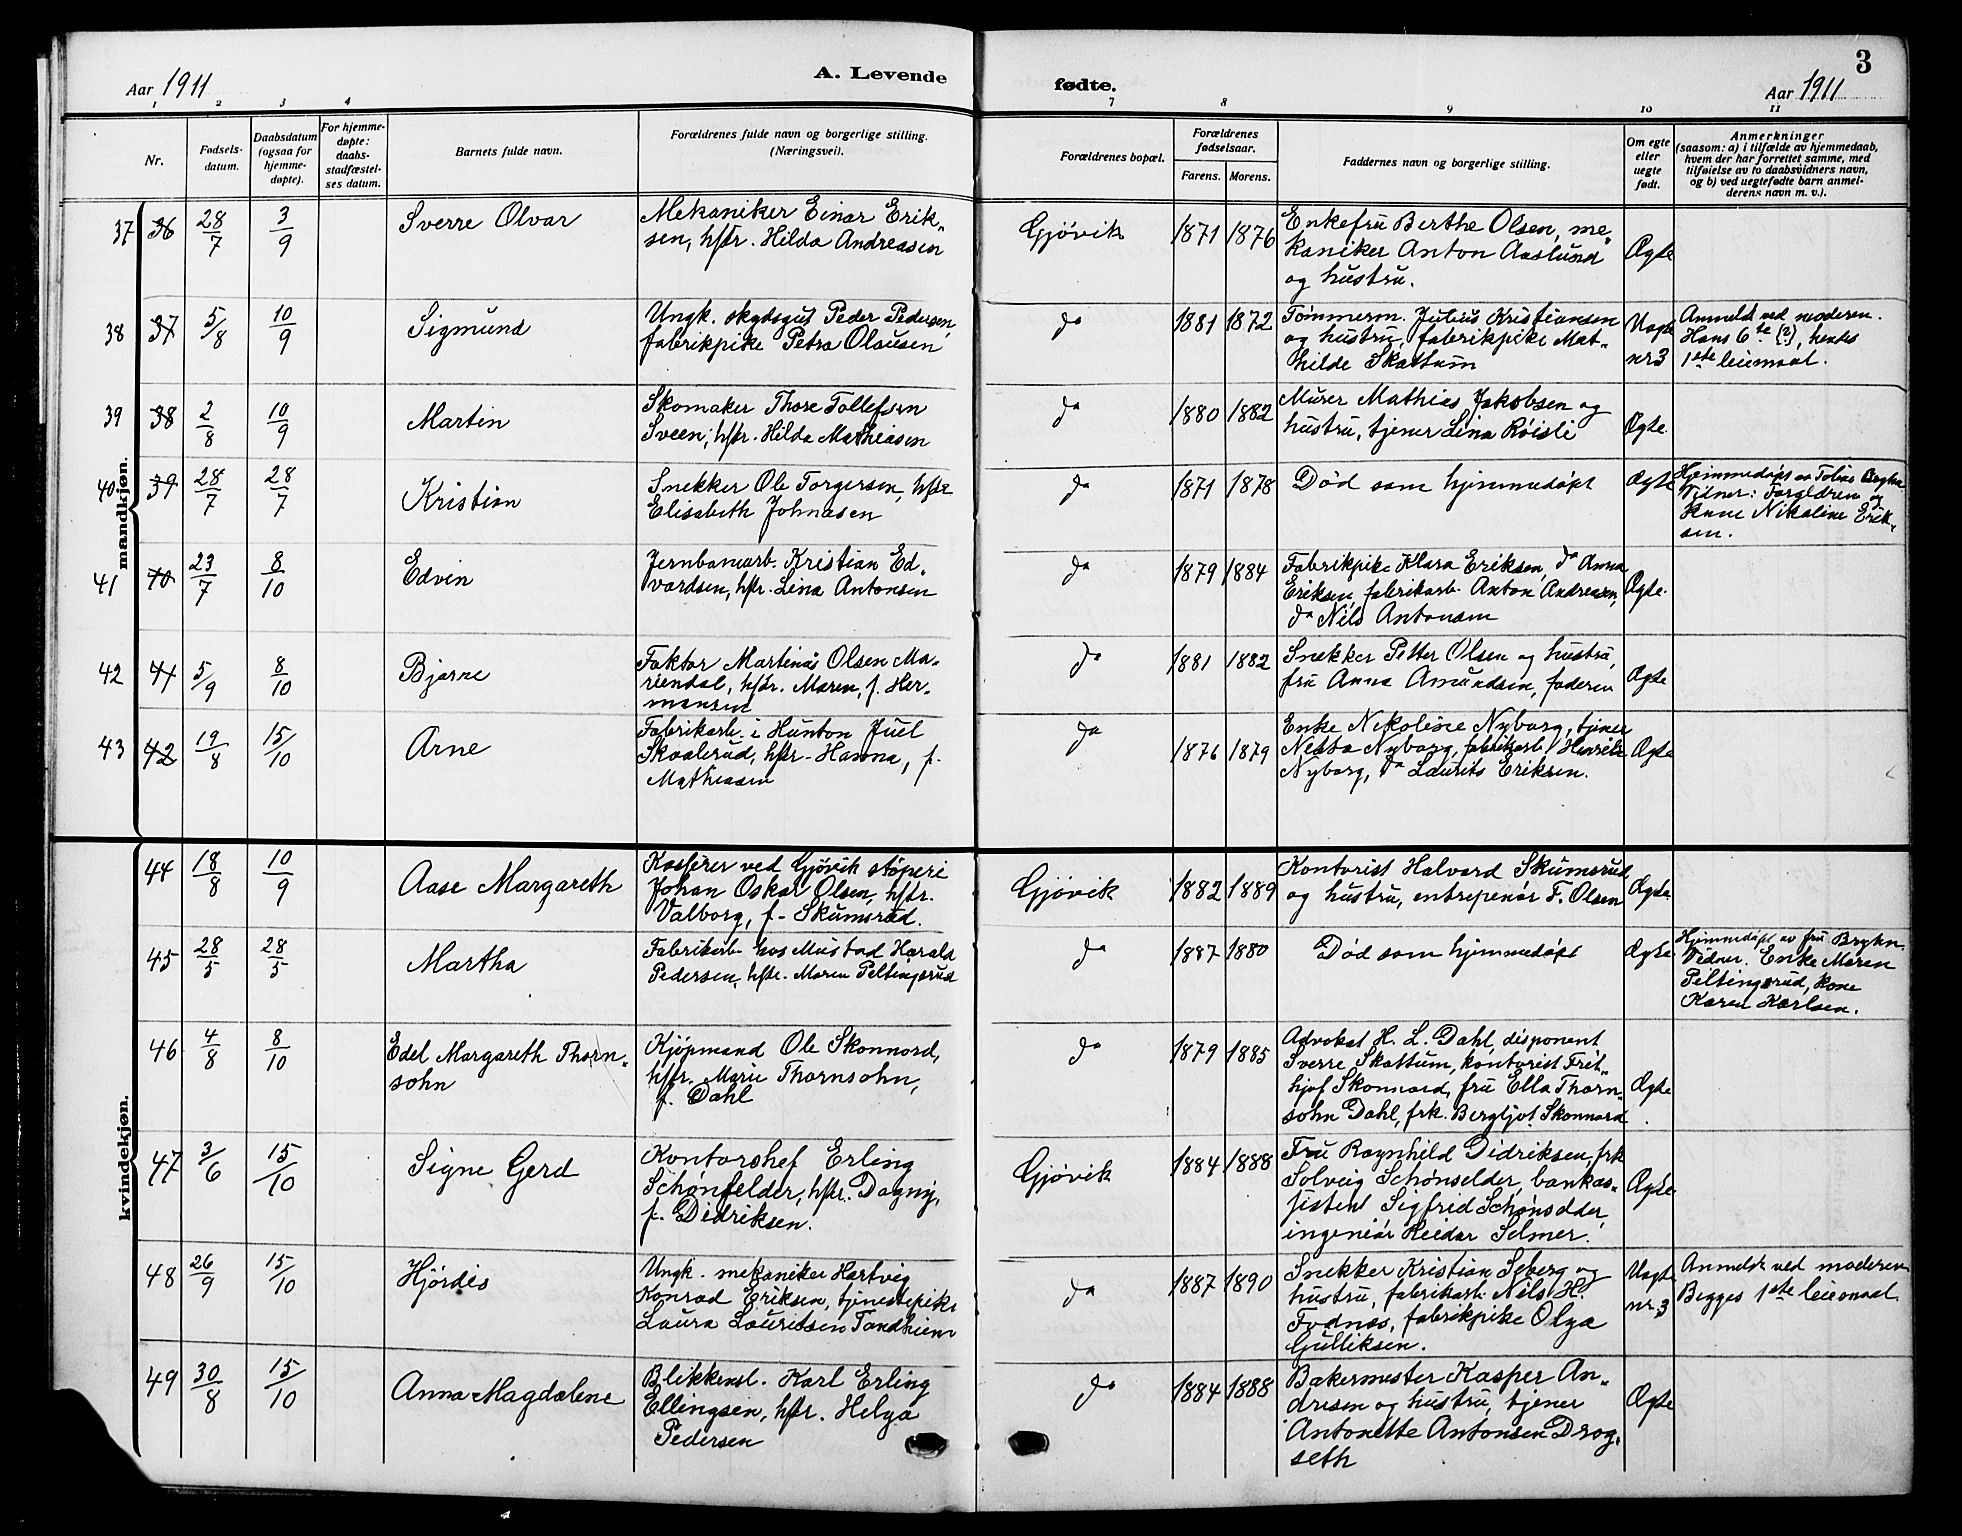 3
Aar 1911
A. Levende
fødte.
Aar 1911
1 2 3 4 7 8 9 10 11
Nr.
Fødsels-
datum.
Daabsdatum
(ogsaa for
hjemme-
døpte).
For hjemme-
døpte:
daabs-
stadfæstel-
ses datum.
Barnets fulde navn.
Forældrenes fulde navn og borgerlige stilling.
(Næringsvei).
Forældrenes bopæl.
Forældrenes
fødselsaar.
Farens. Morens.
Faddernes navn og borgerlige stilling.
Om egte
eller
uegte
født.
Anmerkninger
(saasom: a) i tilfælde av hjemmedaab,
hvem der har forrettet samme, med
tilføielse av to daabsvidners navn,
og b) ved uegtefødte barn anmel-
derens navn m. v.).
mandkjøn.
37 36 28/7 3/9
Sverre Olvar
Mekaniker Einar Erik-
sen, hstr. Hilda Andreasen
Gjøvik
1871 1876
Enkefru Berthe Olsen, me-
kaniker Anton Aaslund
og hustru.
Ægte
38 37 5/8 10/9
Sigmund
Ungk. skydsgut Peder Pedersen,
fabrikpike Petra Olausen
do
1881 1872
Tømmerm. Julius Kristiansen
og hustru, fabrikpike Mat-
hilde Skattum
Uegte
nr 3
Anmeldt ved moderen.
Hans 6te (?), hendes
1ste leiemaal.
39 38 2/8 10/9
Martin
Skomaker Thore Tollefsen
Sveen, hstr. Hilda Mathiasen
do
1880 1882
Murer Mathias Jakobsen og
hustru, tjener Lina Røisli
Ægte
40 39 28/7 28/7
Kristian
Snekker Ole Torgersen, hstr
Elisabeth Johnasen
do
1871 1878
Død som hjemmedøpt
Ægte
Hjemmedøpt av Tobias
Vidner: Forældren og
Kone Nikoline Erik-
sen.
41 40 23/7 8/10
Edvin
Jernbanearb. Kristian Ed-
vardsen, hstr. Lina Antonsen
do
1879 1884
Fabrikpike Klara Eriksen, do Anna
Eriksen, fabrikarb. Anton Andreasen,
do Nils Antonsen
Ægte.
42 41 5/9 8/10
Bjarne
Faktor Martinus Olsen Ma-
riendal, hstr. Maren, f. Her-
mansen
do
1881 1882
Snekker Petter Olsen og hustru,
fru Anna Amundsen, faderen
Ægte
43 42 19/8 15/10
Arne
Fabrikarb. i Hunton Juel
Skaalerud, hstr. Hanna, f.
Mathiasen
do
1876 1879
Enke Nikoline Nyborg, tjener
Netta Nyborg, fabrikarb. Henrik
Nyborg, do Laurits Eriksen.
Ægte
kvindekjøn.
44 18/8 10/9
Aase Margareth
Kasserer ved Gjøvik støperi
Johan Oskar Olsen, hstr.
Valborg, f. Skumsrud.
Gjøvik
1882 1889
Kontorist Halvard Skumsrud
og hustru, entrepenør F. Olsen
Ægte
45 28/5 28/5
Martha
Fabrikarb. hos Mustad Harald
Pedersen, hstr. Maren Peltingsrud
do
1887 1880
Død som hjemmedøpt
Ægte
Hjemmedøpt av fru Bryhn.
Vidner. Enke Maren
Peltingsrud, kone
Karen Karlsen.
46 4/8 8/10
Edel Margareth Thorn-
sohn
Kjøpmand Ole Skonnord,
hstr. Marie Thornsohn,
f. Dahl
do
1879 1885
Advokat H. L. Dahl, disponent
Sverre Skattum, kontorist Frit-
hjof Skonnord, fru Ella Thorn-
sohn Dahl, frk. Bergljot Skonnord
Ægte.
47 3/6 15/10
Signe Gerd
Kontorchef Erling
Schønfelder, hstr. Dagny,
f. Didriksen.
Gjøvik
1884 1888
Fru Ragnhild Didriksen, frk
Solveig Schønfelder, bankas-
sistent Sigfrid Schønfelder,
ingeniør Heidar Selmer.
Ægte.
48 26/9 15/10
Hjørdis
Ungk. mekaniker Hartvig
Konrad Eriksen, tjenestepike
Laura Lauritsen
do
1887 1890
Snekker Kristian Seberg og
hustru, fabrikarb. Nils H.
Fodnæs, fabrikpike Olga
Gulliksen.
Uegte
nr. 3
Anmeldt ved moderen
Begges 1ste leiemaal
49 30/8 15/10
Anna Magdalene
Blikkensl. Karl Erling
Ellingsen, hstr. Helga
Pedersen
do
1884 1888
Bakermester Kasper An-
dresen og hustru, tjener
Antonette Antonsen Drog-
seth
Ægte